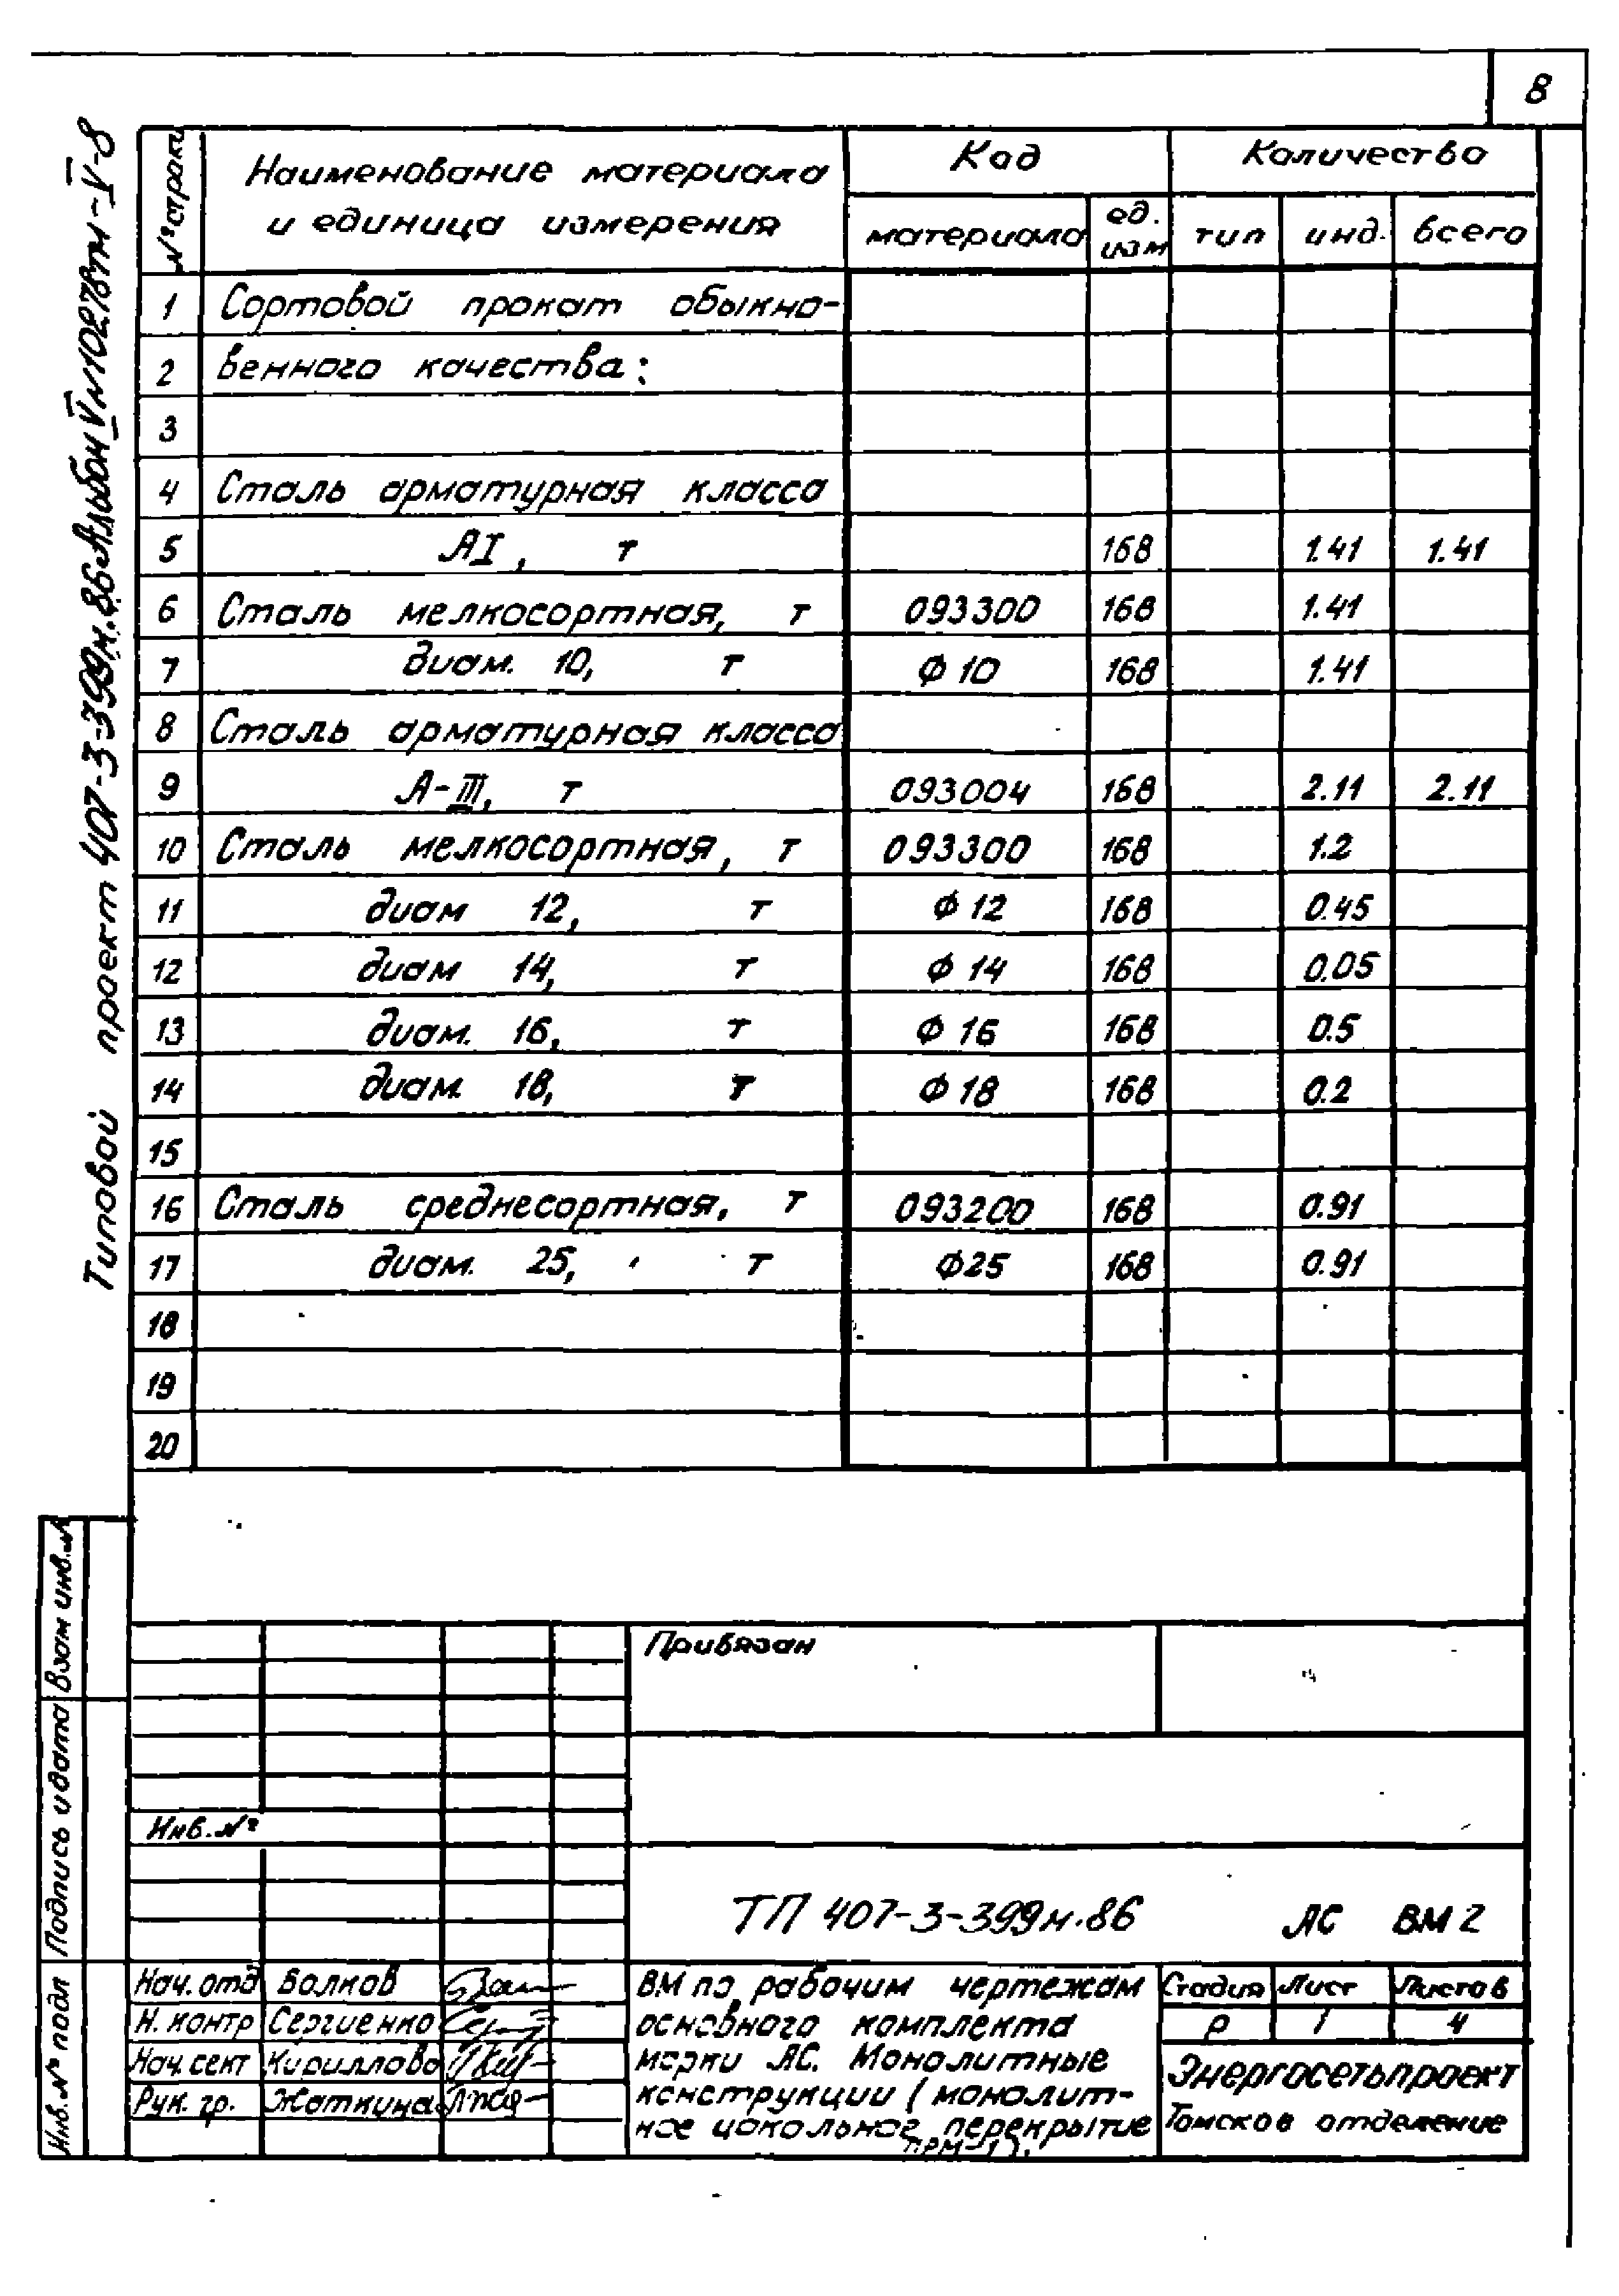 8
Типовой проект 407-3-399м.86 Альбом V №10278тм-V-8
№ строки
Наименование материала и единица измерения
Код
Количество
материала
ед. изм
тип
инд.
всего
1 Сортовой прокат обыкно-
2 венного качества:
3
4 Сталь арматурная класса
5 АI, т 168 1.41 1.41
6 Сталь мелкосортная, т 093300 168 1.41
7 диам. 10, т Ф 10 168 1.41
8 Сталь арматурная класса
9 А-III, т 093004 168 2.11 2.11
10 Сталь мелкосортная, т 093300 168 1.2
11 диам 12, т Ф 12 168 0.45
12 диам 14, т Ф 14 168 0.05
13 диам. 16, т Ф 16 168 0.5
14 диам. 18, т Ф 18 168 0.2
15
16 Сталь среднесортная, т 093200 168 0.91
17 диам. 25, т Ф25 168 0.91
18
19
20
Взам инв.№
Подпись и дата
Инв.№ подл
Привязан
Инв.№
ТП 407-3-399м.86 АС ВМ 2
Нач. отд Волков
Н. контр Сергиенко
Нач. сект Кириллова
Рук. гр. Жаткина
ВМ по рабочим чертежам
основного комплекта
марки АС. Монолитные
конструкции (монолит-
ное цокольное перекрытие
ПРМ-1).
Стадия Лист Листов
Р 1 4
Энергосетьпроект
Томское отделение